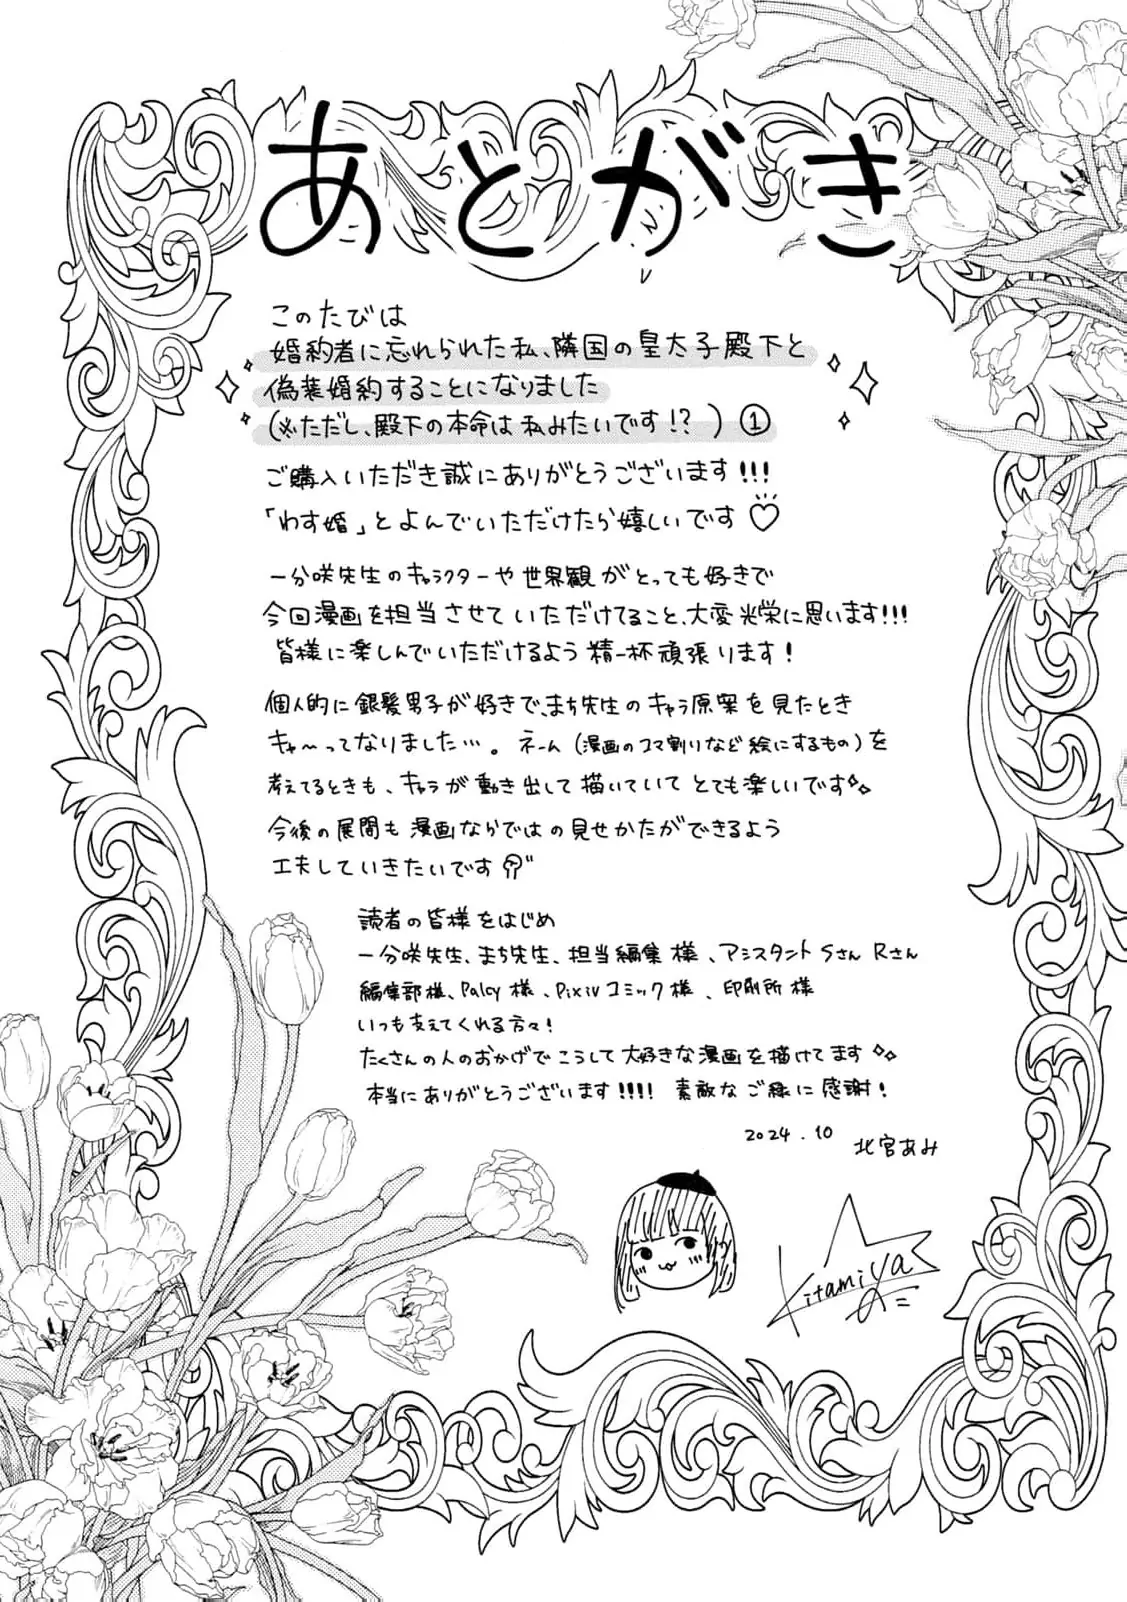 あとがき
このたびは
婚約者に忘れられた私、隣国の皇太子殿下と
偽装婚約することになりました
(※ただし、殿下の本命は私みたいです!?)①
ご購入いただき誠にありがとうございます!!!
「わす婚」とよんでいただけたら嬉しいです♡
一分咲先生のキャラクターや世界観がとっても好きで
今回漫画を担当させていただけてること、大変光栄に思います!!!
皆様に楽しんでいただけるよう精一杯頑張ります!
個人的に銀髪男子が好きで、まち先生のキャラ原案を見たとき
キャ〜ってなりました…。ネーム(漫画のコマ割りなど絵にするもの)を
考えてるときも、キャラが動き出して描いていてとても楽しいです
今後の展開も漫画ならではの見せかたができるよう
工夫していきたいです
読者の皆様をはじめ
一分咲先生、まち先生、担当編集様、アシスタントSさんRさん
編集部様、Palcy様、Pixivコミック様、印刷所様
いつも支えてくれる方々!
たくさんの人のおかげでこうして大好きな漫画を描けてます
本当にありがとうございます!!!! 素敵なご縁に感謝!
2024.10 北宮あみ
Kitamiya